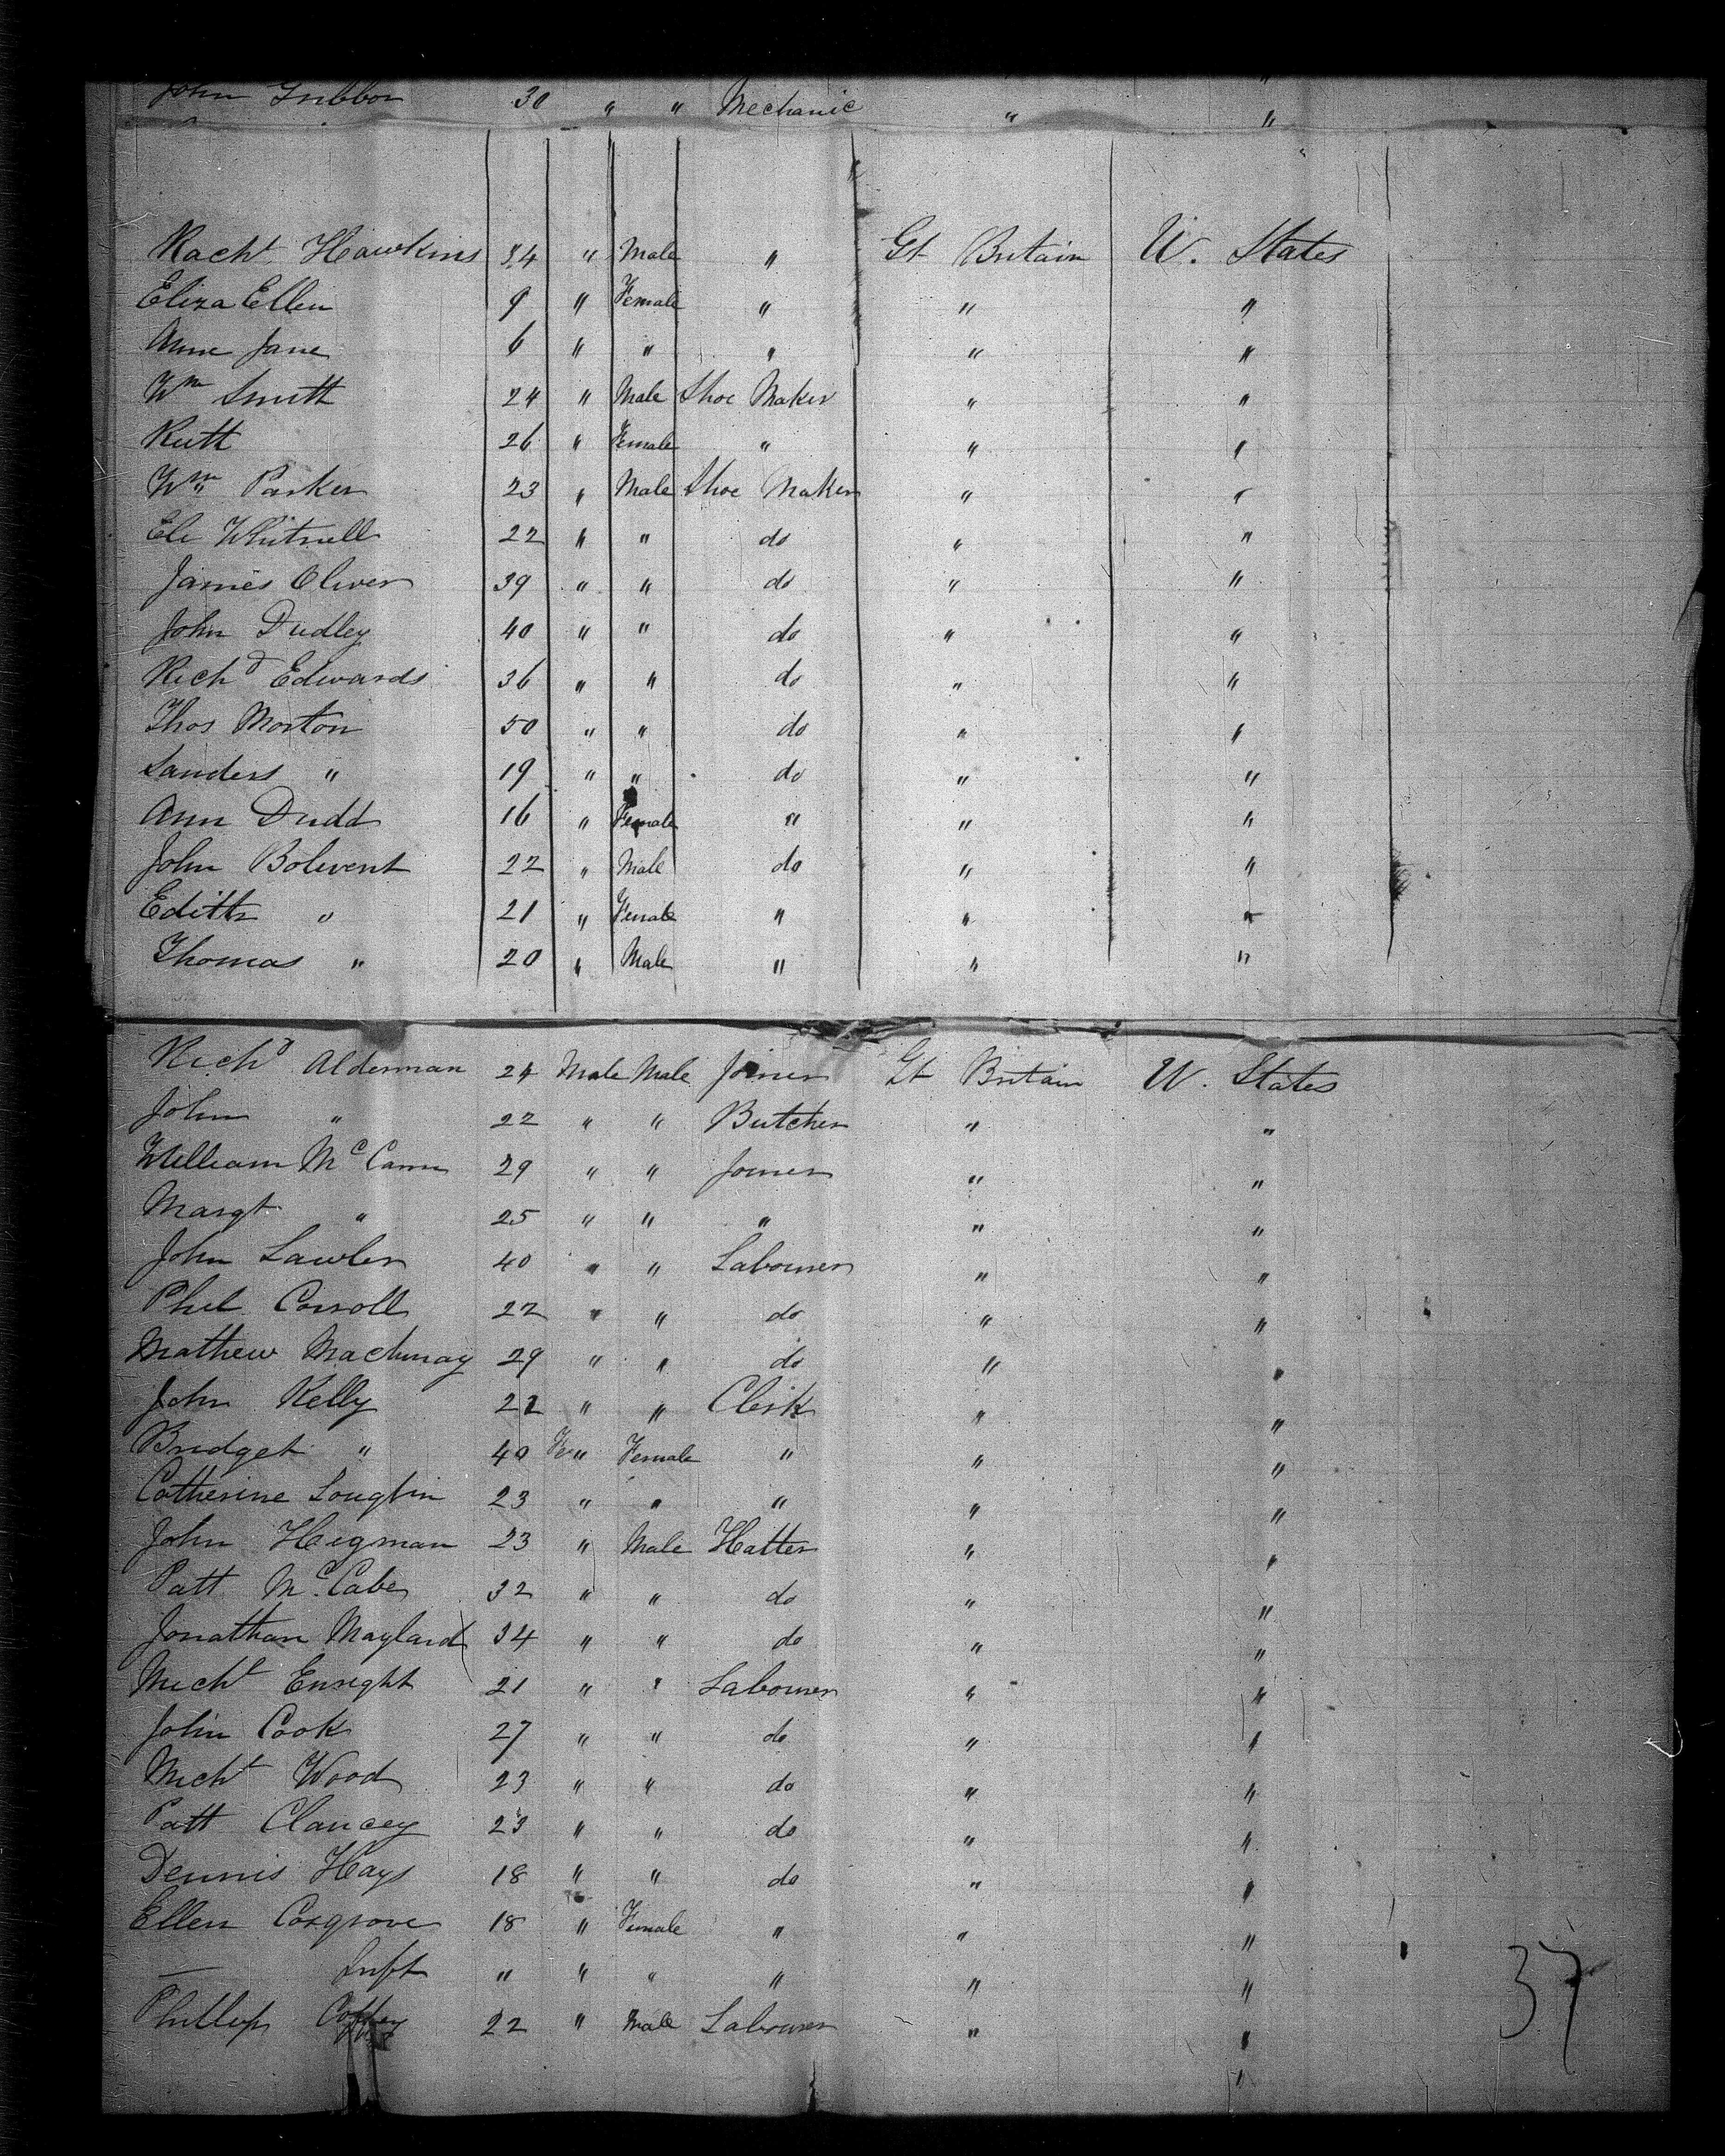 John Gribbon 30 " " Mechanic " "
Rachl Hawkins 34 " Male " Gt Britain U. States
Eliza Ellen 9 " Female " " "
Anne Jane 6 " " " " "
Wm Smith 24 " Male Shoe Maker " "
Ruth 26 " Female " " "
Wm Parker 23 " Male Shoe Maker " "
Eli Whitnell 22 " " do " "
James Oliver 39 " " do " "
John Dudley 40 " " do " "
Richd Edwards 36 " " do " "
Thos Morton 50 " " do " "
Sanders " 19 " " do " "
Ann Dudd 16 " Female " " "
John Bolivent 22 " Male do " "
Edith " 21 " Female " " "
Thomas " 20 " Male " " "
Richd Alderman 24 Male Male Joiner Gt Britain U. States
John " 22 " " Butcher " "
William McCann 29 " " Joiner " "
Margt " 25 " " " " "
John Lawler 40 " " Labourer " "
Phil Corroll 22 " " do " "
Mathew 29 " " do " "
John Kelly 22 " " Clerk " "
Bridget " 40 Fe " Female " " "
Catherine Louglin 23 " " " " "
John Hegman 23 " Male Hatter " "
Patt McCabe 32 " " do " "
Jonathan Maylard 34 " " do " "
Michl Enright 21 " " Labourer " "
John Cook 27 " " do " "
Michl Wood 23 " " do " "
Patt Clancey 23 " " do " "
Dennis Hays 18 " " do " "
Ellen Cosgrove 18 " Female " " "
— Inft " " " " " "
Phillip Coffey 22 " Male Labourer " "
37